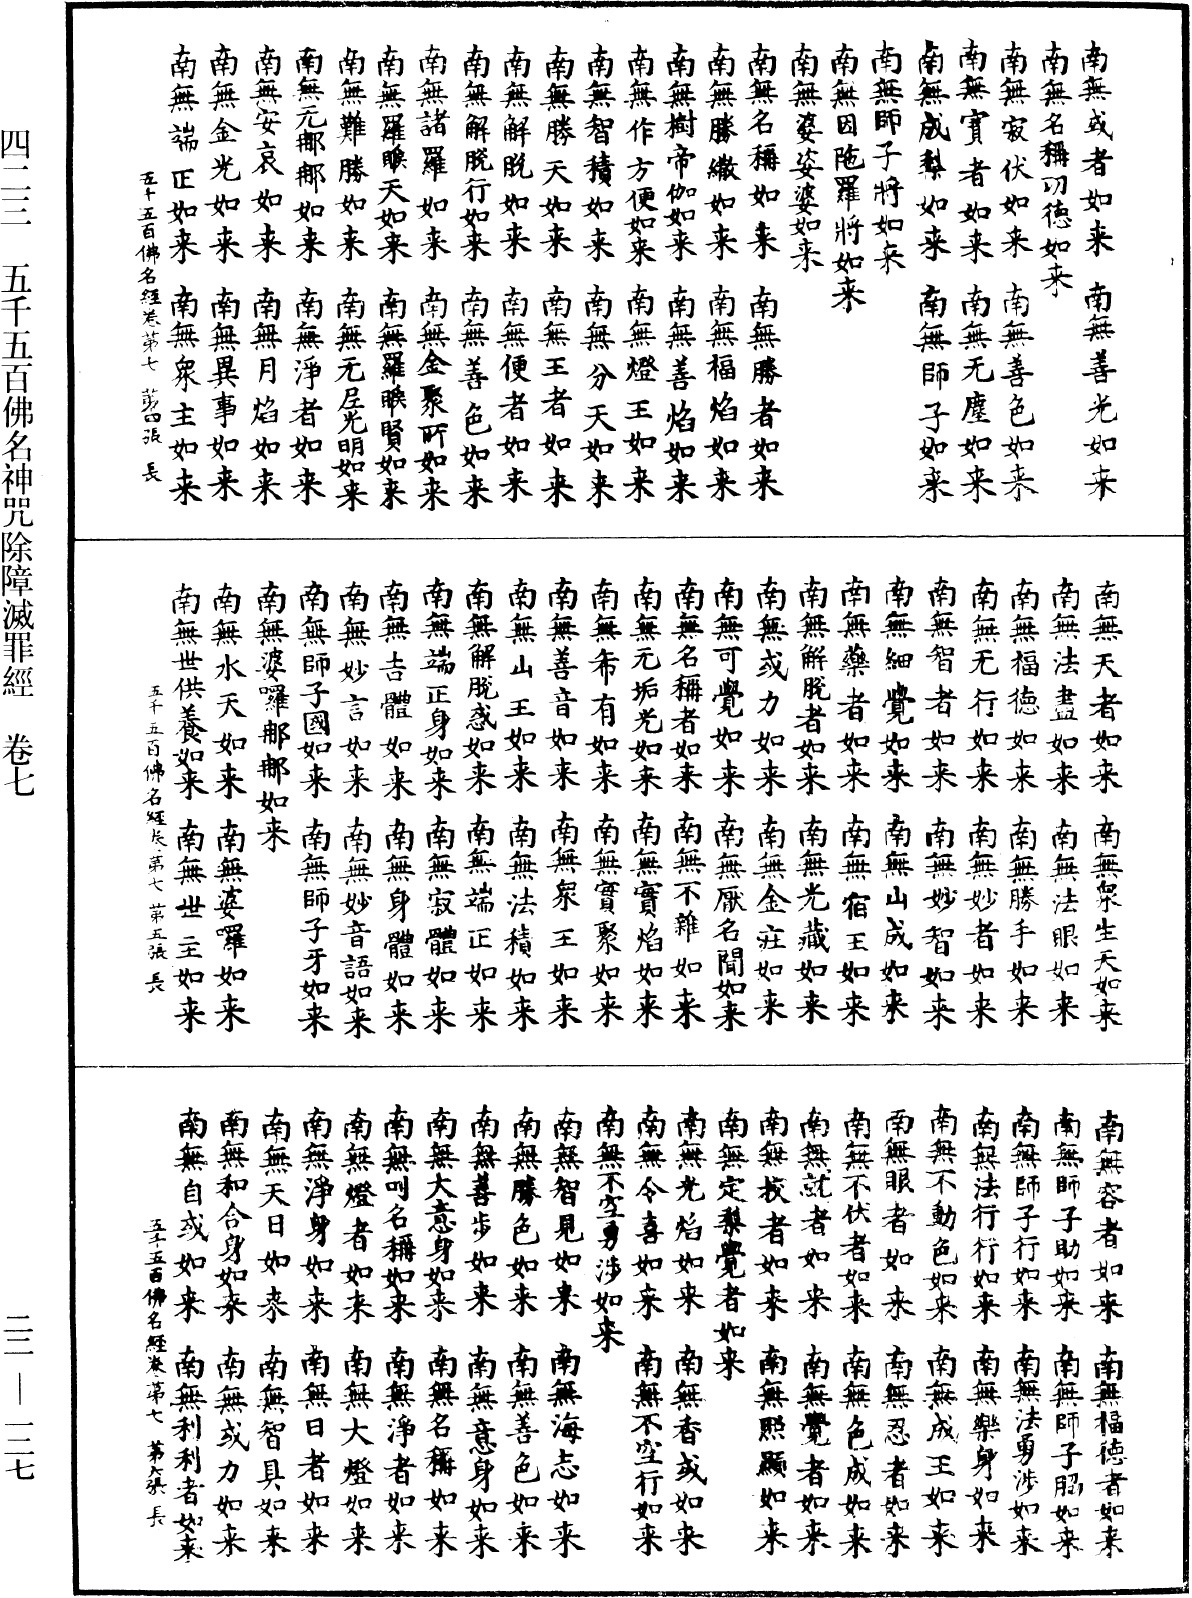 南無或者如来　南無善光如来
南無名稱功德如来
南無寂伏如来　南無善色如来
南無實者如来　南無无塵如来
南無成梨如来　南無師子如来
南無師子將如来
南無因陁羅將如来
南無婆娑婆如来
南無名稱如来　南無勝者如来
南無勝繖如来　南無福焰如来
南無樹帝伽如来　南無善焰如来
南無作方便如来　南無燈王如来
南無智積如来　南無分天如来
南無勝天如来　南無王者如来
南無解脱如来　南無便者如来
南無解脱行如来　南無善色如来
南無諸羅如来　南無金聚所如来
南無羅睺天如来　南無羅睺賢如来
南無難勝如来　南無无居光明如来
南無元郍郍如来　南無淨者如来
南無安哀如来　南無月焰如来
南無金光如来　南無異事如来
南無端正如来　南無衆主如来
五千五百佛名經卷第七　第四張　長
南無天者如来　南無衆生天如来
南無法盡如来　南無法眼如来
南無福德如来　南無勝手如来
南無无行如来　南無妙者如来
南無智者如来　南無妙智如来
南無細覺如来　南無山成如来
南無藥者如来　南無宿王如来
南無解脱者如来　南無光藏如来
南無或力如来　南無金庄如来
南無可覺如来　南無厭名聞如来
南無名稱者如来　南無不雜如来
南無元垢光如来　南無實焰如来
南無希有如来　南無實聚如来
南無善音如来　南無衆王如来
南無山王如来　南無法積如来
南無解脱惑如来　南無端正如来
南無端正身如来　南無寂體如来
南無吉體如来　南無身體如来
南無妙言如来　南無妙音語如来
南無師子國如来　南無師子牙如来
南無婆囉郍郍如来
南無水天如来　南無婆囉如来
南無世供養如来　南無世主如来
五千五百佛名經卷第七　第五張　長
南無容者如来　南無福德者如来
南無師子助如来　南無師子照如来
南無師子行如来　南無法勇涉如来
南無法行行如来　南無樂身如来
南無不動色如来　南無成王如来
南無眼者如来　南無忍者如来
南無不伏者如来　南無色成如来
南無就者如来　南無覺者如来
南無技者如来　南無照顯如来
南無定梨覺者如来
南無光焰如来　南無香或如来
南無令喜如来　南無不空行如来
南無不空勇涉如来
南無智見如来　南無海志如来
南無勝色如来　南無善色如来
南無善步如来　南無意身如来
南無大意身如来　南無名稱如来
南無叫名稱如来　南無淨者如来
南無燈者如来　南無大燈如来
南無淨身如来　南無日者如来
南無天日如来　南無智具如来
南無和合身如来　南無或力如来
南無自或如来　南無利利者如来
五千五百佛名經卷第七　第六張　長
四二三　五千五百佛名神咒除障滅罪經　卷七
二三—一二七